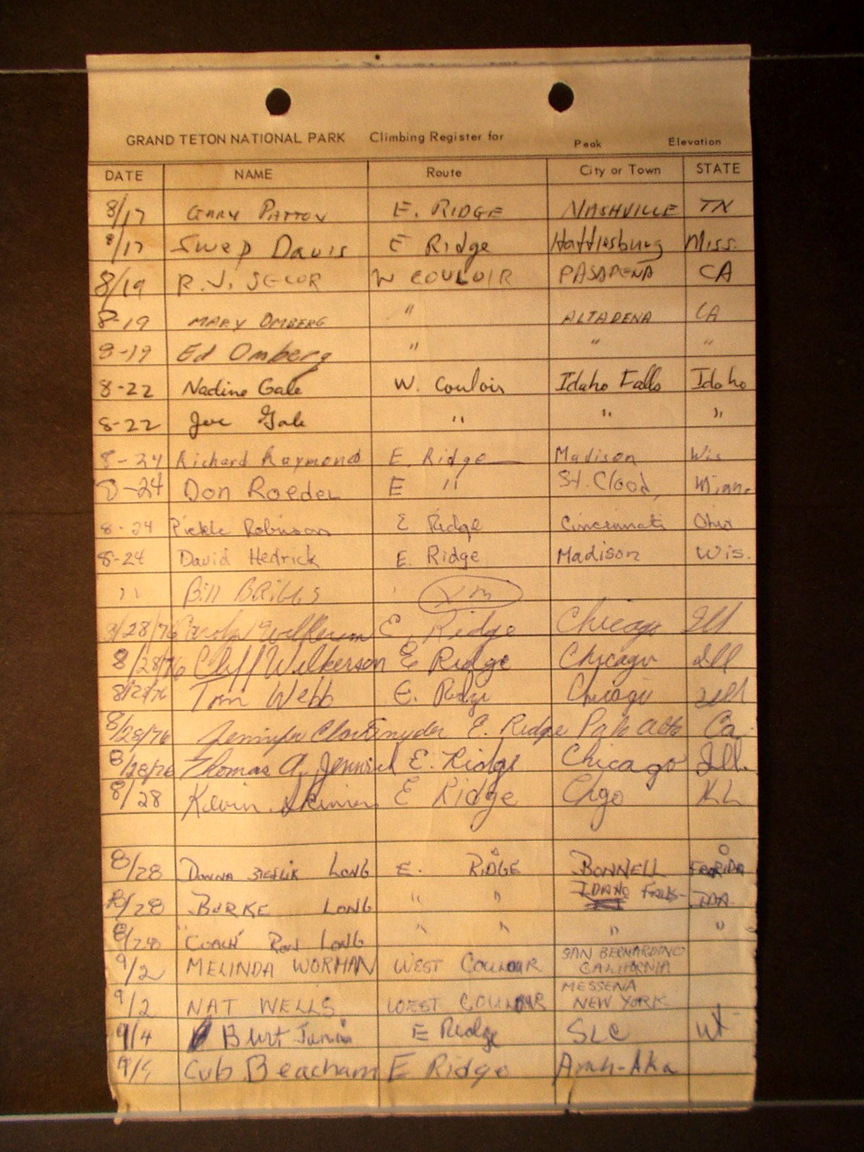 GRAND TETON NATIONAL PARK Climbing Register for Peak Elevation
DATE NAME Route City or Town STATE
8/17 GARY PATTON E. RIDGE NASHVILLE TN
8/17 Swep Davis E Ridge Hattiesburg Miss.
8/19 R.J. SECOR W COULOIR PASADENA CA
8-19 MARY OMBERG " ALTADENA CA
8-19 Ed Omberg " " "
8-22 Nadine Gale W. Couloir Idaho Falls Idaho
8-22 Joe Gale " " "
8-24 Richard Raymond E. Ridge Madison Wis
8-24 Don Roeder E " St. Cloud, Minn.
8-24 Pickle Robinson E Ridge Cincinnati Ohio
8-24 David Hedrick E. Ridge Madison Wis.
" Bill BRIGGS
8/28/76 Wilkerson E. Ridge Chicago Ill
8/28/76 Cliff Wilkerson E Ridge Chicago Ill
8/28/76 Tom Webb E. Ridge Chicago Ill
8/28/76 Jennifer E. Ridge Palo Alto Ca
8/28/76 Thomas A. E. Ridge Chicago Ill.
8/28 Kevin Skinner E Ridge Chgo
8/28 DONNA LONG E. RIDGE BONNELL FLORIDA
8/28 BURKE LONG " " IDAHO FALLS IDA.
8/28 "COACH" RON LONG " " " "
9/2 MELINDA WORMAN WEST COULOIR SAN BERNARDINO
CALIFORNIA
9/2 NAT WELLS WEST COULOIR MESSENA
NEW YORK
9/4 Burt E Ridge SLC Ut
Cub Beacham E Ridge